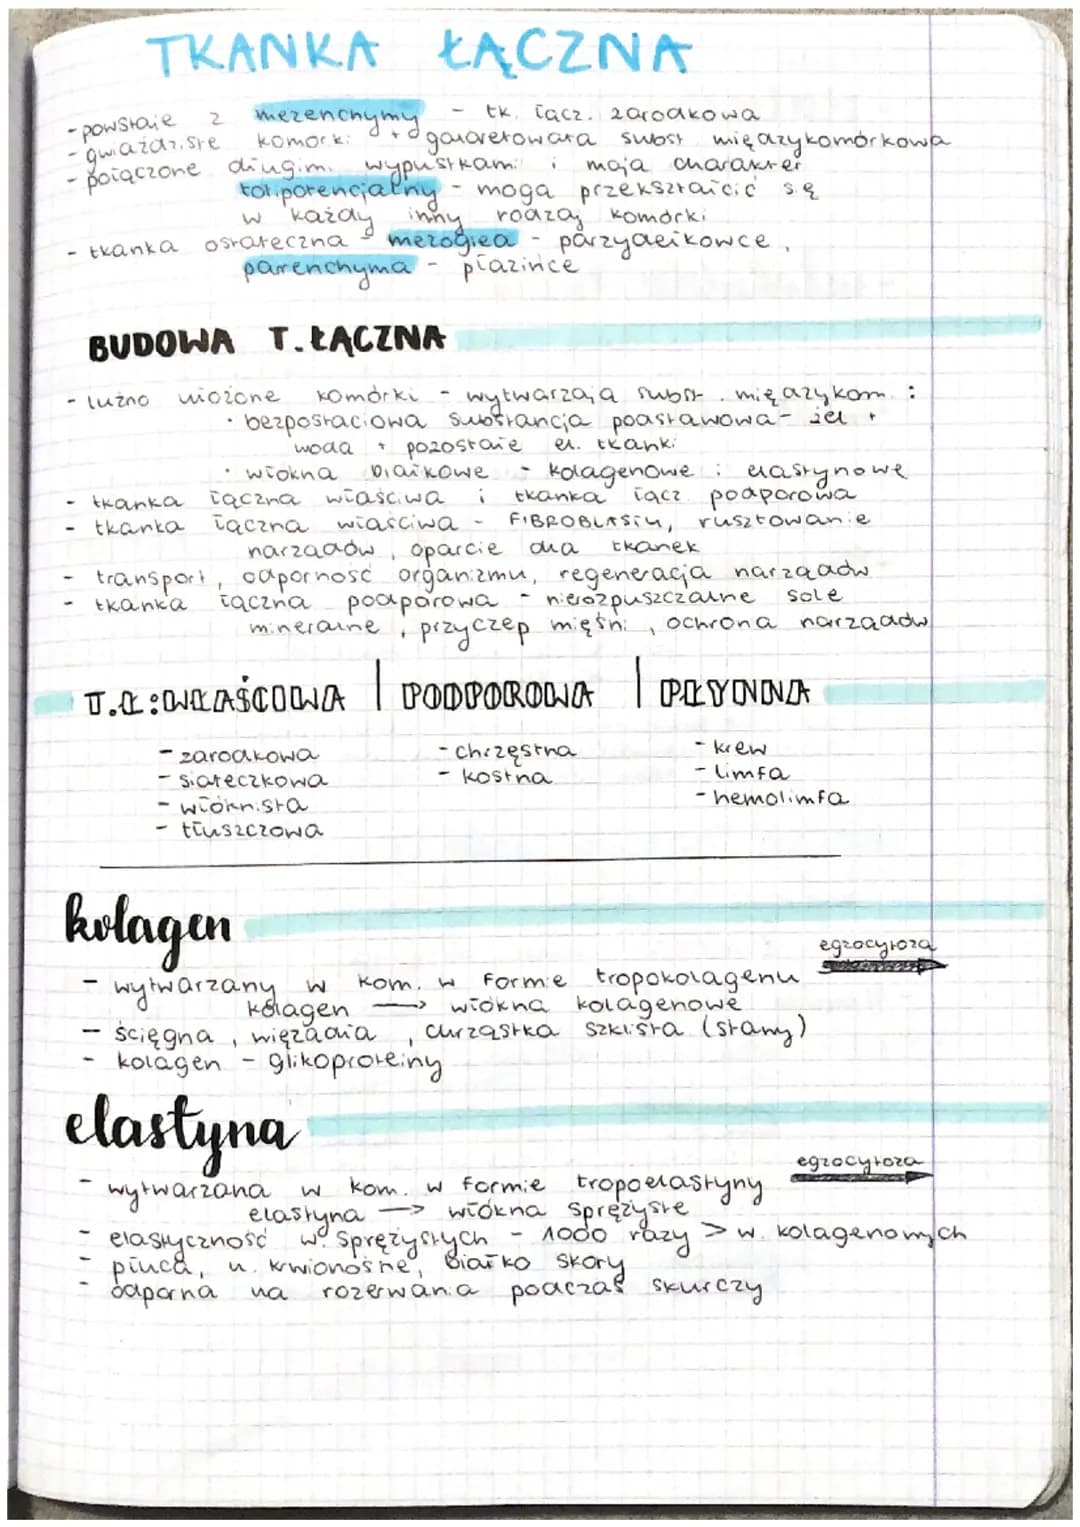 TKANKA ŁĄCZNA
- powstaje z mezenchymy - tk. łącz. zarodkowa
- gwiaździste komórki + galaretowata subst międzykomórkowa
- połączone długimi wypustkami i mają charakter
totipotencjalny - mogą przekształcić się
w każdy inny rodzaj komórki
- tkanka ostateczna - mezoglea - parzydełkowce,
parenchyma - płazińce
BUDOWA T. ŁĄCZNA
- luźno ułożone komórki - wytwarzają subst. międzykom. :
• bezpostaciowa substancja podstawowa - żel +
woda + pozostałe el. tkanki
• włókna białkowe - kolagenowe i elastynowe
- tkanka łączna właściwa i tkanka łącz podporowa
- tkanka łączna właściwa - FIBROBLASTY, rusztowanie
narządów, oparcie dla tkanek
- transport, odporność organizmu, regeneracja narządów
- tkanka łączna podporowa - nierozpuszczalne sole
mineralne, przyczep mięśni, ochrona narządów
T.Ł: WŁAŚCIWA | PODPOROWA | PŁYNNA
- zarodkowa - chrzęstna - krew
- siateczkowa - kostna - limfa
- włóknista - hemolimfa
- tłuszczowa
kolagen
egzocytoza
- wytwarzany w kom. w formie tropokolagenu
kolagen → włókna kolagenowe
- ścięgna, więzadła, chrząstka szklista (stawy)
- kolagen - glikoproteiny
elastyna
egzocytoza
- wytwarzana w kom. w formie tropoelastyny
elastyna → włókna sprężyste
- elastyczność w. sprężystych - 1000 razy > w. kolagenowych
- płuca, n. krwionośne, białko skóry
- odporna na rozerwania podczas skurczy